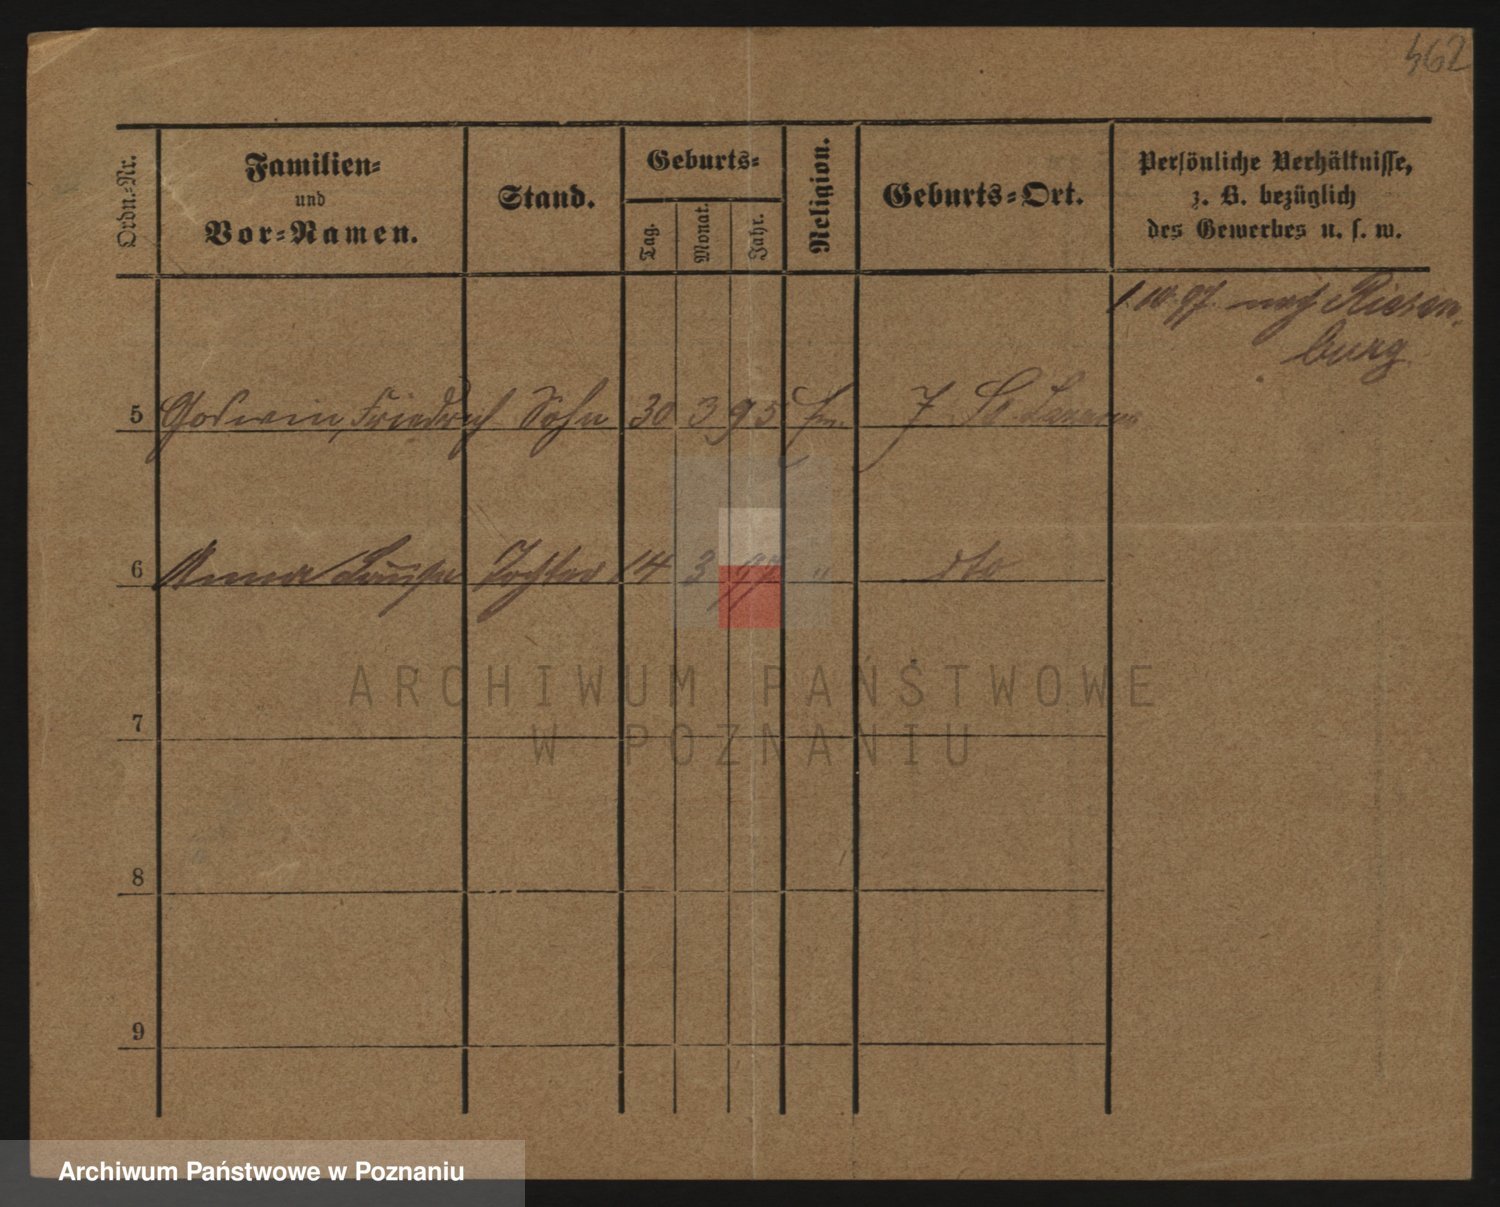 462
Ordn.-Nr.
Familien-
und
Vor-Namen.
Stand.
Geburts-
Tag.
Monat.
Jahr.
Religion.
Geburts-Ort.
Persönliche Verhältnisse,
z. B. bezüglich
des Gewerbes u. s. w.
1.10.97. nach Riesen-
burg
5 Friedrich Sohn 30 3 95 St. Lazarus
6 Anna Louise Tochter 14 3 97 " dto
7
8
9
ARCHIWUM PAŃSTWOWE
W POZNANIU
Archiwum Państwowe w Poznaniu